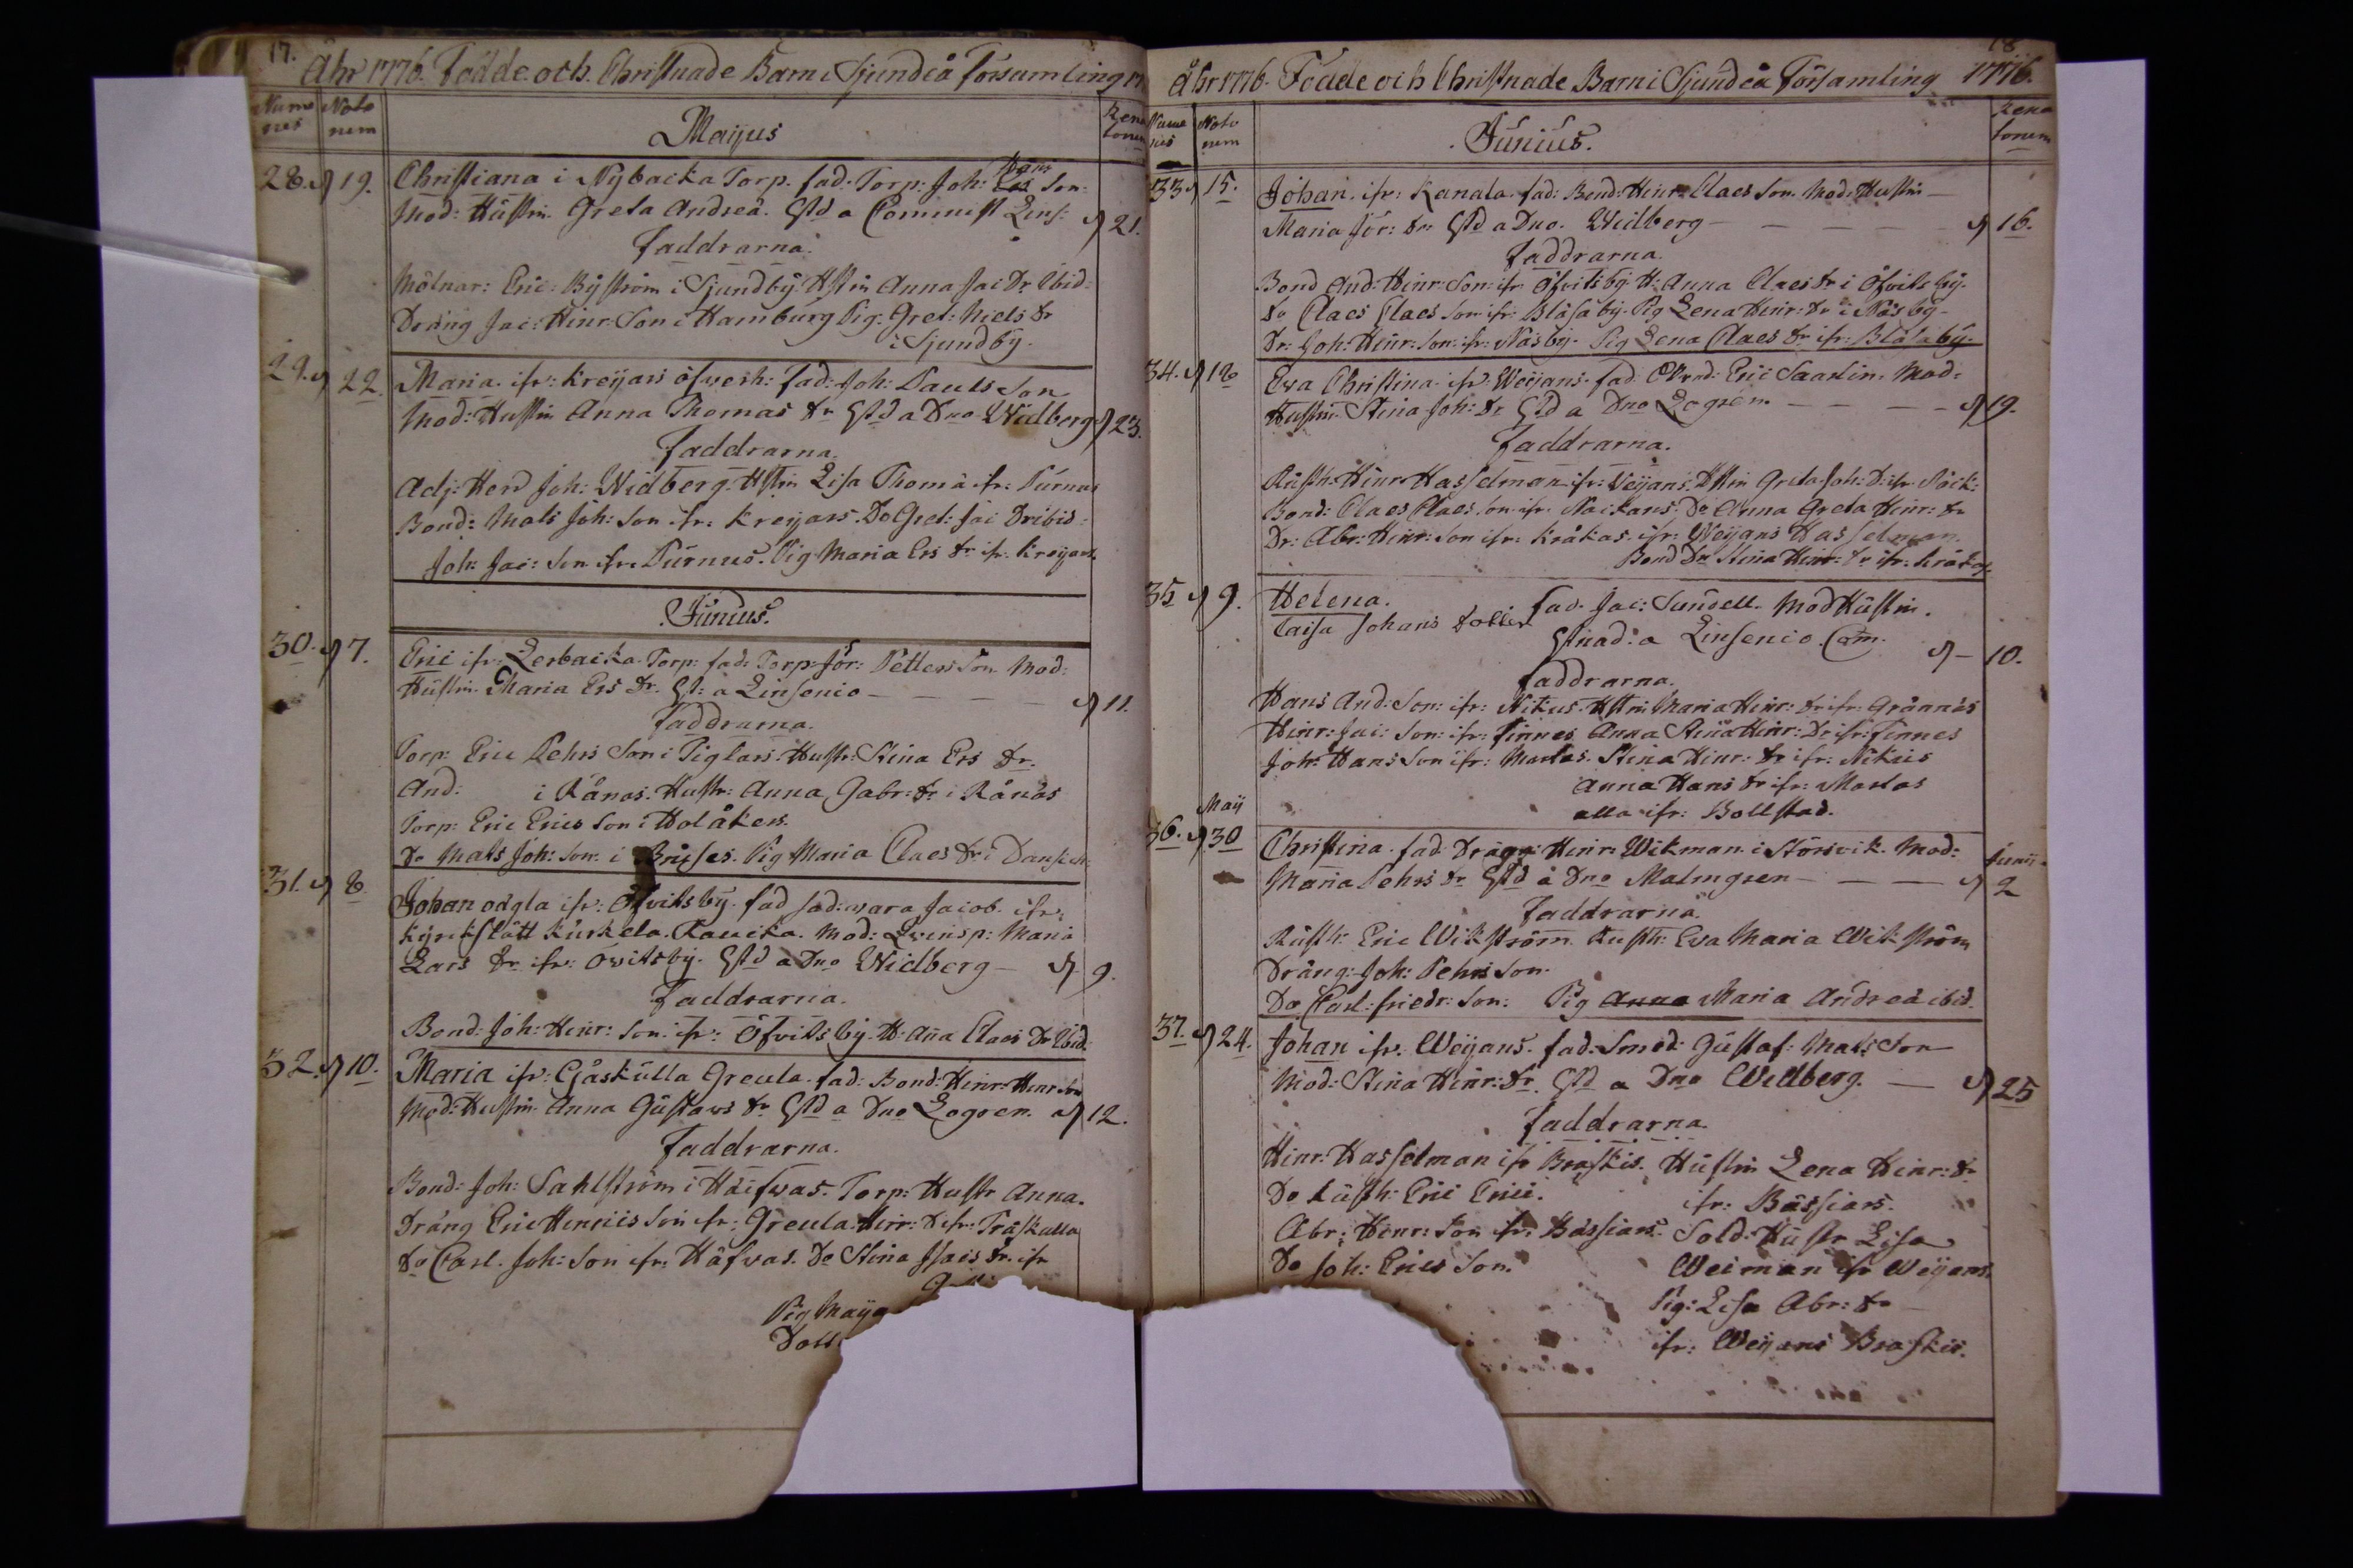 17.
Åhr 1776. Födde och Christnade Barn i Sjundeå Församling
Nume nus
Nato num
Majus
Rena torum
28. d 19. Christiana i Nybacka Torp. fad. Torp: Joh: Son.
Mod: Hustrun Greta Andreæ. Gstd a Commist Lins: d 21.
Faddrarna.
Mölnar: Eric Byström i Sjundby. Hstrn Anna Jac Dr Ibid:
Dräng Jac: Hinr: Son i Hamburg Pig. Gret: Niels Dr
i Sjundby.
29. d 22. Maria. ifr: Kreijars öfverh: fad: Joh: Pauls Son
Mod: Hustrun Anna Thomas Dr Gstd a Dno Widberg d 23.
Faddrarna.
Adj: Herr Joh: Widberg. Hstrn Lisa Thomæ ifr: Purnus
Bond: Mats Joh: Son ifr: Kreijars. Do Gret: Jac Dr ibid:
Joh: Jac: Son ifr. Purnus. Pig Maria Ers Dr ifr. Kreijars.
Junius.
30. d 7. Eric ifr: Lerbacka Torp: fad: Torp: Jör: Petters Son Mod:
Hustrun Maria Ers Dr. Gst: a Linsenio — d 11.
Faddrarna.
Torp: Eric Pehrs Son i Piglars. Hustr: Stina Ers Dr.
And: i Rånäs. Hustr: Anna Gabr: Dr i Rånäs
Torp: Eric Erics Son i Holåkers.
Do Mats Joh: Son i Pig Maria Claes Dr i
31. d 8. Johan odgla ifr: Öfvitsby. fad sad: vara Jacob ifr:
Kyrckslätt Kurkela. Mod: Qvinsp: Maria
Lars Dr ifr: Övitsby. Gstd a Dno Widberg — d 9.
Faddrarna.
Bond: Joh: Hinr: Son ifr: Öfvitsby. H: Anna Claes Dr Ibid.
32. d 10. Maria ifr: Gåskulla Greula. fad: Bond: Hinr: Hinr Son
Mod: Hustrun Anna Gustavs Dr Gstd a Dno Logren. d 12.
Faddrarna.
Bond: Joh: Sahlström i Torp: Hustr Anna.
Dräng Eric Henrics Son ifr: Greula. Hinr: D ifr: Träskulla
Do Carl. Joh: Son ifr: Häfvas. Do Stina Isacs Dr. ifr
Pig Maija
Dott
18.
Åhr 1776. Födde och Christnade Barn i Sjundeå Församling 1776.
Nume nus
Nato num
Junius.
Rena torum
33 d 15. Johan. ifr: Kanala. fad: Bond: Hinr: Claes Son. Mod: Hustrun —
Maria Jör: Dr Gstd a Dno. Widberg — — — — d 16.
Faddrarna.
Bond And: Hinr: Son: ifr: Öfvitsby. H: Anna Claes Dr i Öfvitsby.
Do Claes Claes Son ifr: Blåsaby. Pig Lena Hinr: Dr i Näsby.
Dr: Joh: Hinr: Son: ifr: Näsby. Pig Lena Claes Dr ifr: Blåsaby.
34. d 18 Eva Christina. ifr: Weijans. fad: Eric Saarlin. Mod:
Hustrun Stina Joh: Dr Gstd a Dno Logrén — — — d 19.
Faddrarna.
Rusth: Hinr Hasselman ifr: Weijans. Hstrn Greta Joh: D: ifr.
Bond: Claes Claes Son ifr. Do Anna Greta Hinr: Dr
Dr: Abr: Hinr: Son ifr: Kråkas. ifr: Weijans Hasselman.
Bond Dr Stina Hinr: Dr ifr: Kråkas.
35 d 9. Helena. fad. Jac: Sundell. Mod Hustrun.
Caisa Johans Dotter
Gstnad: a Linsenio. Com. d — 10.
Faddrarna.
Hans And: Son: ifr: Nikus. Hstrn Maria Hinr: Dr ifr: Grännäs
Hinr: Jac: Son: ifr: Finnes Anna Stina Hinr: Dr ifr: Finnes
Joh: Hans Son ifr: Martas. Stina Hinr: Dr ifr: Nikus
Anna Hans Dr ifr: Martas
alla ifr: Bollstad.
Maij
36. d 30 Christina. fad: Dräng: Hinr: Wikman i Störsvik. Mod: Junii
Maria Pehrs Dr Gstd a Dno Malmgren — — — d 2
Faddrarna.
Rusth: Eric Wikström. Rusth: Eva Maria Wikström
Dräng: Joh: Pehrs Son.
Do Carl: friedr: Son: Pig Anna Maria Andreæ ibid.
37. d 24. Johan ifr: Weijans. fad: Smed: Gustaf: Mats Son —
Mod: Stina Hinr: Dr. Gstd a Dno Widberg. — d 25
Faddrarna.
Hinr: Hasselman ifr Braskis. Hustrun Lena Hinr: Dr
Do Rusth: Eric Eric: ifr: Bässiars.
Abr: Hinr: Son ifr: Bässiars. Sold: Hustr Lisa
Do Joh: Erics Son. Weiman ifr Weijans.
Pig: Lisa Abr: Dr —
ifr: Weijans Braskis.